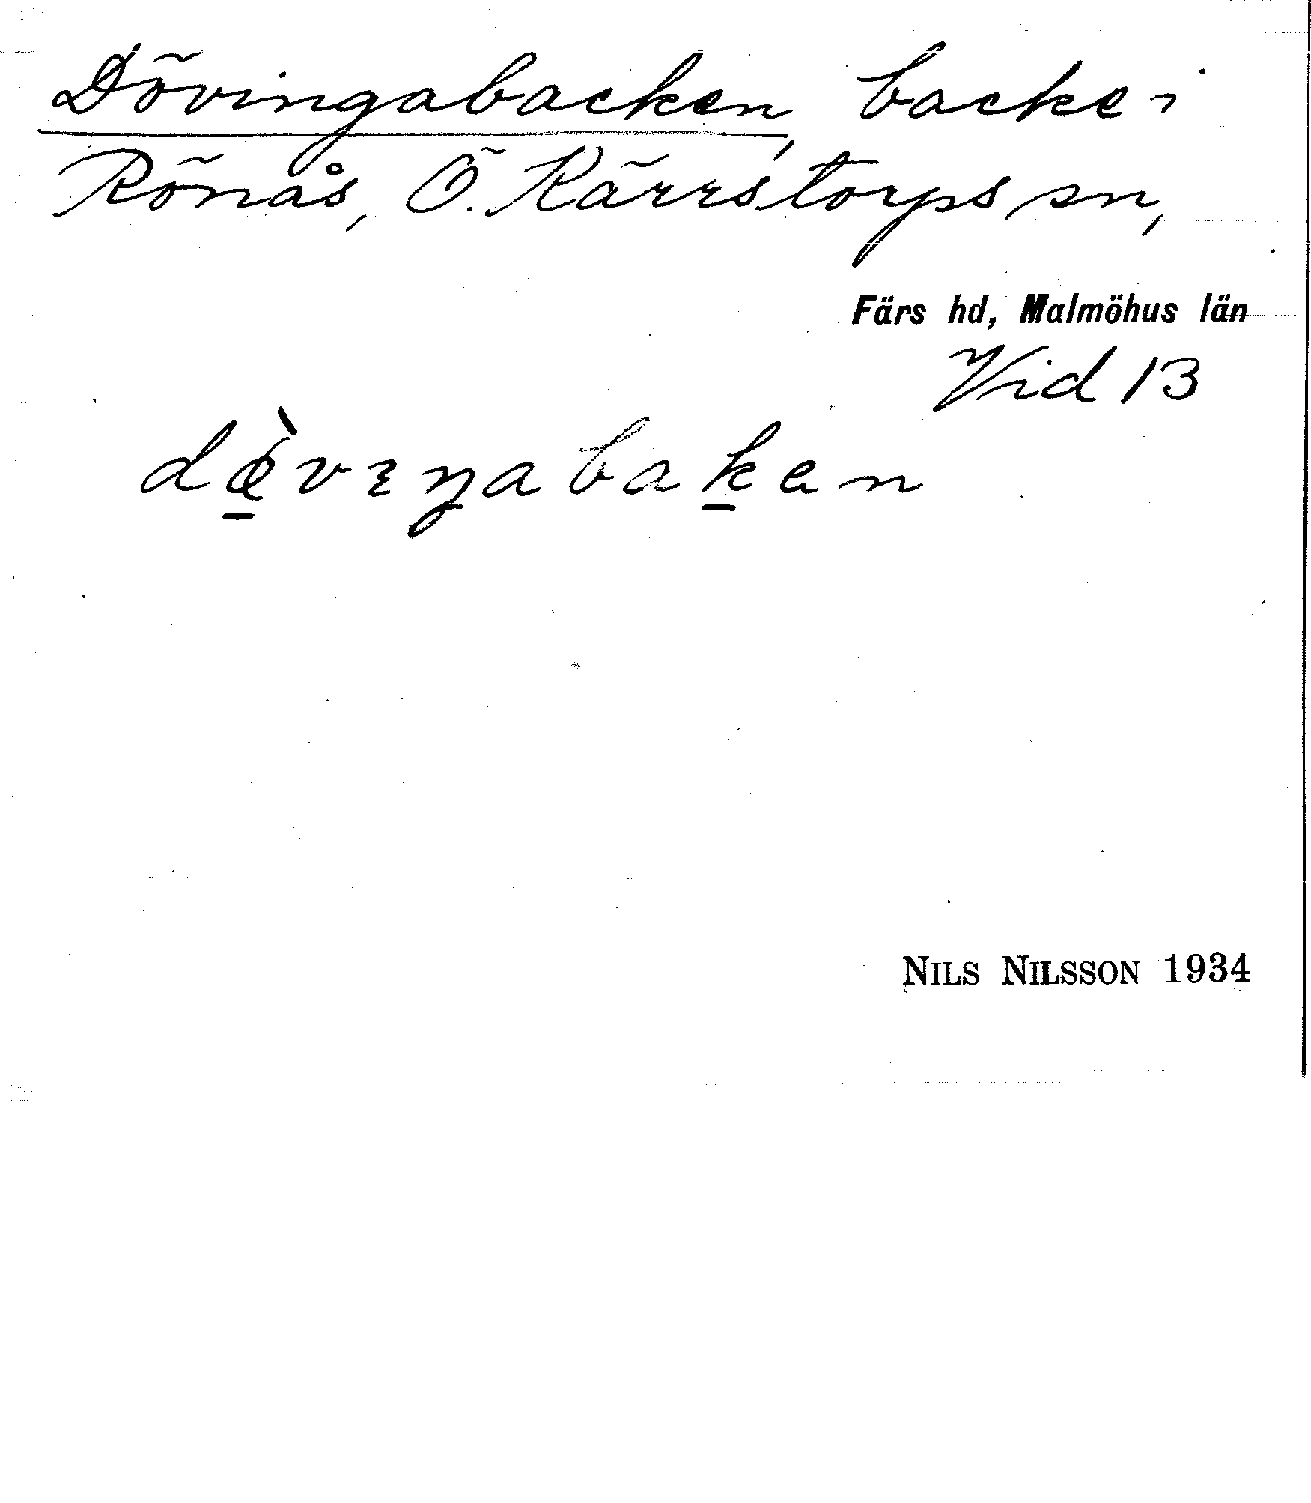 Dövingabacken, backe i
Rönås, Ö. Kärrstorps sn,
Färs hd, Malmöhus län
Vid 13
dø̱̀vıŋabaḵen
NILS NILSSON 1934